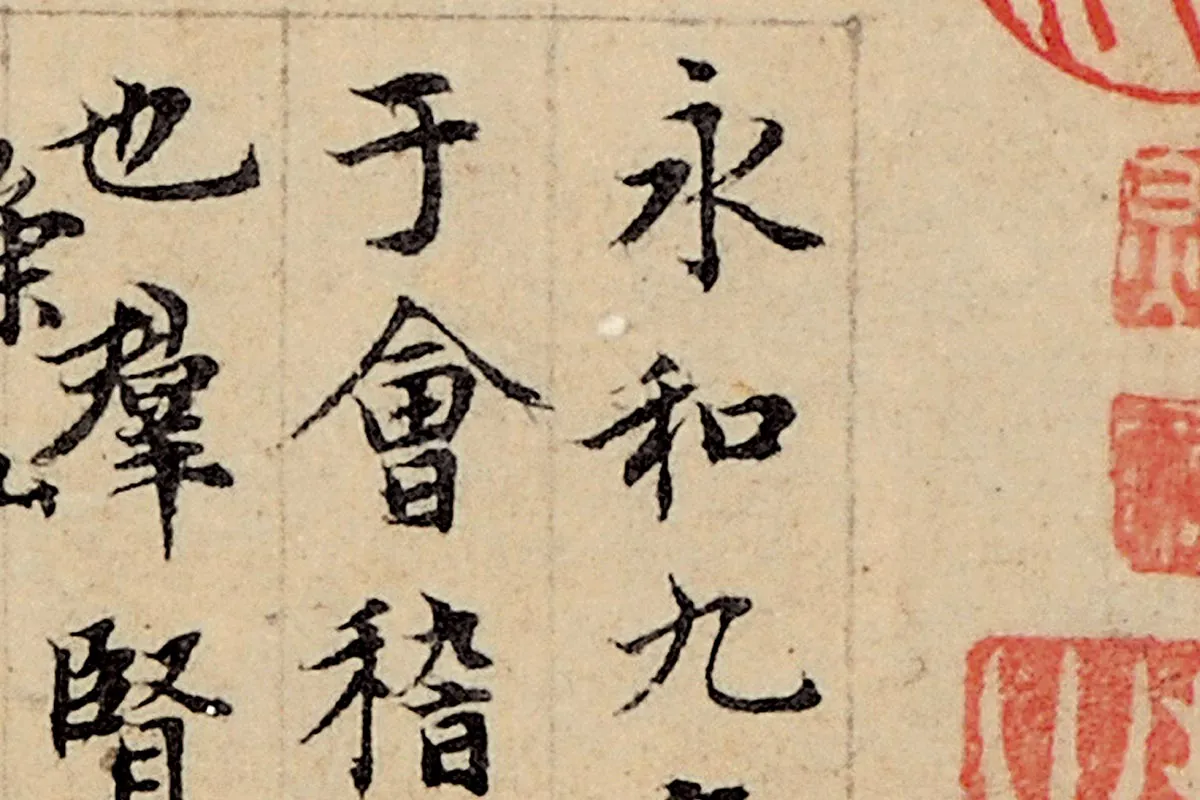 永和九
于會稽
也羣賢